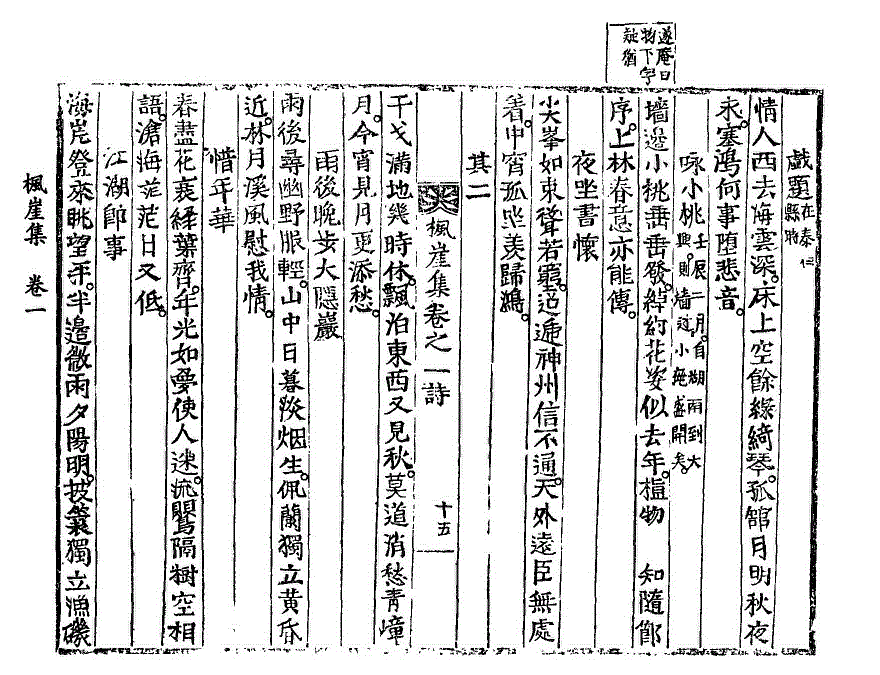 遂庵曰
物下字
疑猶
戲題在泰仁縣時
情人西去海雲深。床上空餘綠綺琴。孤館月明秋夜
永。塞鴻何事墮悲音。
咏小桃壬辰二月。自湖南到大興。則墻邊小桃盛開矣。
墻邊小桃垂垂發。綽約花姿似去年。植物 知隨節
序。上林春意亦能傳。
夜坐書懷
尖峯如束聲若窮。迢遞神州信不通。天外遠臣無處
着。中宵孤坐羡歸鴻。
其二
楓崖集卷之一 詩 十五
干戈滿地幾時休。飄泊東西又見秋。莫道消愁靑嶂
月。今宵見月更添愁。
雨後晚步大隱巖
雨後尋幽野服輕。山中日暮淡烟生。佩蘭獨立黃昏
近。林月溪風慰我情。
惜年華
春盡花衰綠葉齊。年光如夢使人迷。流鸎隔樹空相
語。滄海茫茫日又低。
江湖卽事
海岸登來眺望平。半邊微雨夕陽明。披簑獨立漁磯
楓崖集 卷一